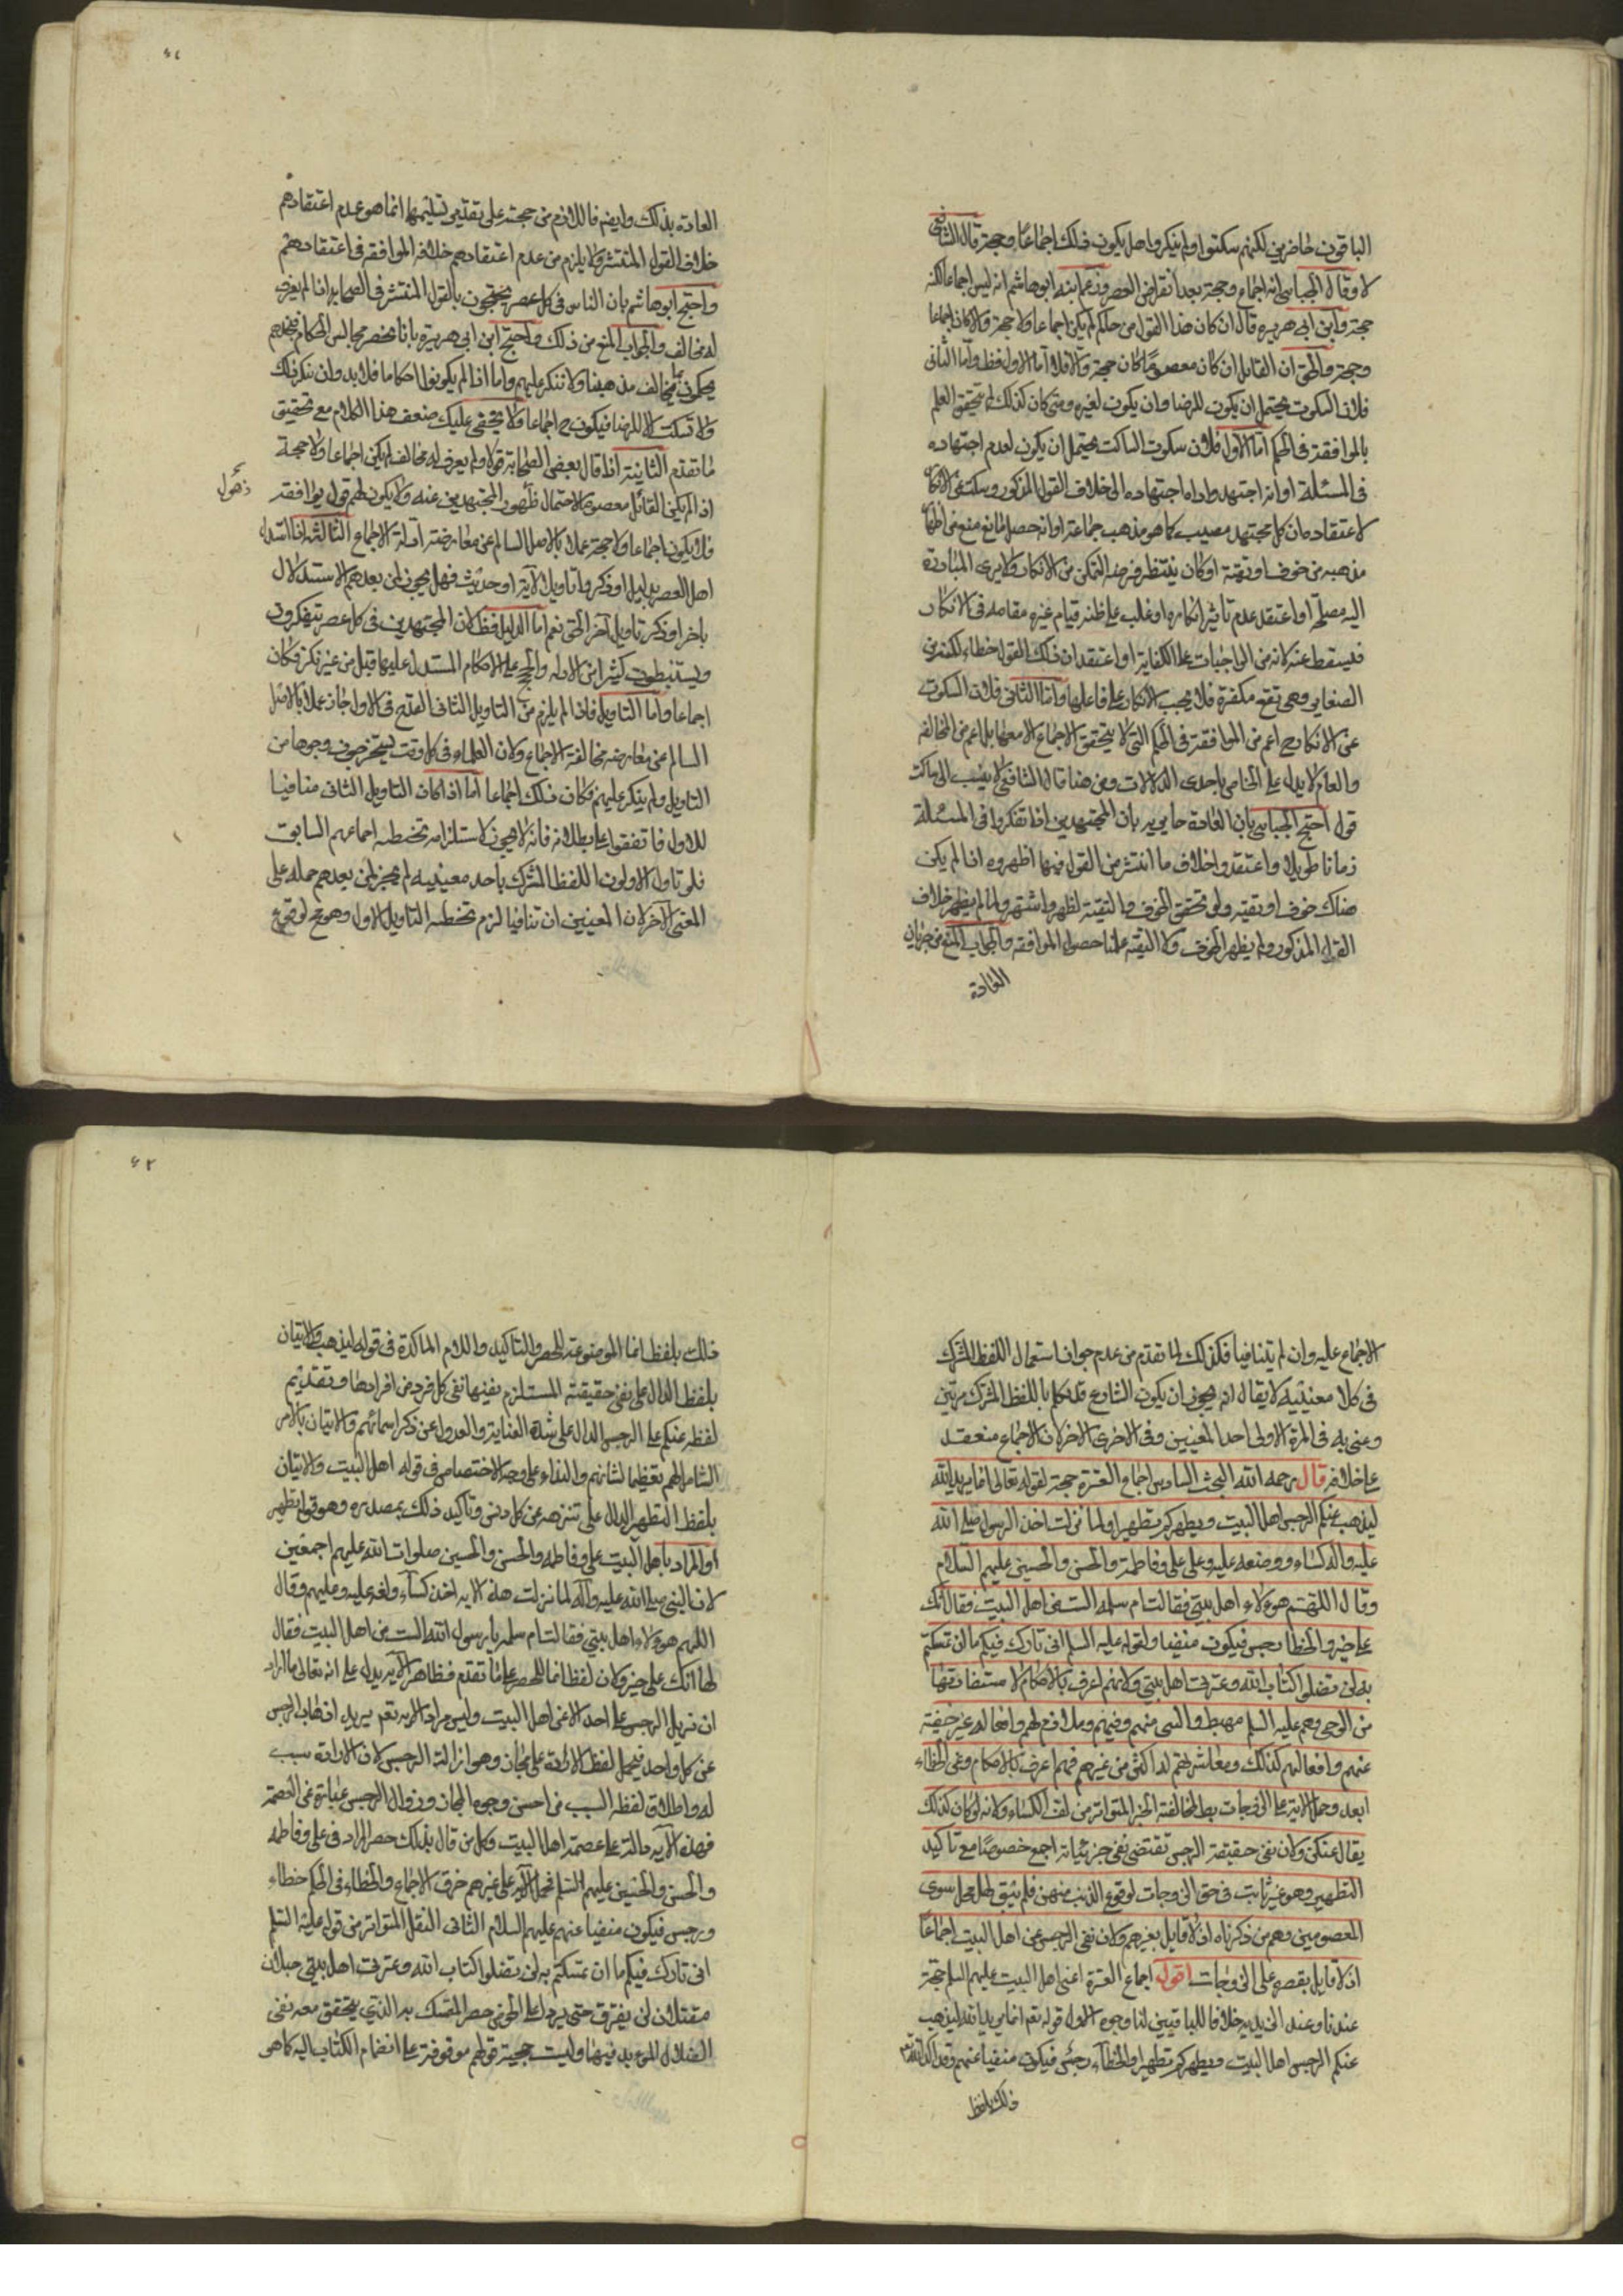 الباقون حاضرين لكنهم سكتوا ولم ينكروا هل يكون ذلك اجماعا وحجة قال الشافعي
لا وقال الجبائي انه اجماع وحجة بعد انقراض العصر وزعم ابنه ابو هاشم انه ليس اجماعا لكنه
حجة وابن ابي هريرة قال ان كان هذا القول من حاكم لم يكن اجماعا ولا حجة والا كان اجماعا
وحجة والحق ان القايل ان كان معصوما كان حجة والا فلا اما الاول فظ واما الثاني
فلان السكوت يحتمل ان يكون للرضا وان يكون لغيره ومتى كان كذلك لم يتحقق العلم
بالموافقة في الحكم اما الاول فلان سكوت الساكت يحتمل ان يكون لعدم اجتهاده
في المسئلة او انه اجتهد واداه اجتهاده الى خلاف القول المذكور وسكت عن الانكار
لاعتقاده ان كل مجتهد مصيب كما هو مذهب جماعة او انه حصل مانع منع من اظهار
مذهبه من خوف او تقية او كان ينتظر فرصة التمكن من الانكار ولا يرى المبادرة
اليه مصلحة او اعتقد عدم تأثير انكاره او غلب على ظنه قيام غيره مقامه في الانكار
فيسقط عنه لانه من الواجبات على الكفاية او اعتقد ان ذلك القول خطاء لكنه من
الصغاير وهي تقع مكفرة فلا يجب الانكار على فاعلها واما الثاني فلان السكوت
عن الانكار ح اعم من الموافقة في الحكم التي لا يتحقق الاجماع الا معها بل اعم من المخالفة
والعام لا يدل على الخاص باحدى الدلالات ومن هنا قال الشافعي لا ينسب الى ساكت
قول احتج الجبائي بان العادة جارية بان المجتهدين اذا تفكروا في المسئلة
زمانا طويلا واعتقدوا خلاف ما انتشر من القول فيها اظهروه اذا لم يكن
هناك خوف او تقية ولو تحقق الخوف والتقية لظهر واشتهر ولما لم يظهر خلاف
القول المذكور ولم يظهر الخوف ولا التقية علمنا حصول الموافقة والجواب المنع من جريان
العادة
العادة بذلك وايضه فاللازم من حجته على تقدير تسليمها انما هو عدم اعتقادهم
خلاف القول المنتشر ولا يلزم من عدم اعتقادهم خلافه الموافقة في اعتقادهم
واحتج ابو هاشم بان الناس في كل عصر يحتجون بالقول المنتشر في الصحابة اذا لم يعرف
له مخالف والجواب المنع من ذلك واحتج ابن ابي هريرة بانا نحضر مجالس الحكام فنجدهم
يحكمون بما يخالف مذهبنا ولا ننكر عليهم واما اذا لم يكونوا حكاما فلا بد وان ننكر ذلك
ولا نسكت الا للرضا فيكون ح اجماعا ولا يخفى عليك ضعف هذا الكلام مع تحقيق
ما تقدم الثانية اذا قال بعض الصحابة قولا ولم يعرف له مخالف لم يكن اجماعا ولا حجة
ذهول
اذا لم يكن القائل معصوما لاحتمال ذهول المجتهدين عنه ولا يكون لهم قول يوافقه
فلا يكون اجماعا ولا حجة عملا بالاصل السالم عن معارضة ادلة الاجماع الثالثة اذا استدل
اهل العصر بدليل او ذكروا تاويل لآية او حديث فهل يجوز لمن بعدهم الاستدلال
بآخر او ذكر تاويل آخر الحق نعم اما الدليل فظ لان المجتهدين في كل عصر يتفكرون
ويستنبطون كثيرا من الادلة والحجج على الاحكام المستدل عليها قبل من غير نكر فكان
اجماعا واما التاويل فاذا لم يلزم من التاويل الثاني القدح في الاول جاز عملا بالاصل
السالم عن معارضة مخالفة الاجماع ولان العلماء في كل وقت يستخرجون وجوها من
التاويل ولم ينكر عليهم فكان ذلك اجماعا اما اذا كان التاويل الثاني منافيا
للاول فاتفقوا على بطلانه فانه لا يجوز لاستلزامه تخطئة اجماعهم السابق
فلو تاول الاولون اللفظ المشترك باحد معنييه لم يجز لمن بعدهم حمله على
المعنى الآخر لان المعنيين ان تنافيا لزم تخطئة التاويل الاول وهو مح لوقوع
٤٢
الاجماع عليه وان لم يتنافيا فكذلك لما تقدم من عدم جواز استعمال اللفظ المشترك
في كلا معنييه لا يقال انه يجوز ان يكون الشارع قد تكلم باللفظ المشترك مرتين
وعنى به في المرة الاولى احد المعنيين وفي الاخرى الآخر لان الاجماع منعقد
على خلافه قال رحمه الله البحث السادس اجماع العترة حجة لقوله تعالى انما يريد الله
ليذهب عنكم الرجس اهل البيت ويطهركم تطهيرا ولما نزلت اخذ الرسول صلى الله
عليه واله كساء ووضعه عليه وعلى علي وفاطمة والحسن والحسين عليهم السلام
وقال اللهم هؤلاء اهل بيتي فقالت ام سلمه الست من اهل البيت فقال انك
على خير والخطا رجس فيكون منفيا ولقوله عليه السلم اني تارك فيكم ما ان تمسكتم
به لن تضلوا كتاب الله وعترتي اهل بيتي ولانهم اعرف بالاحكام لاستفادتها
من الوحي وهم عليه السلم مهبطه والنبي منهم وفيهم وملازم لهم وافعاله غير خفية
عنهم وافعالهم كذلك ومعاشرتهم له اكثر من غيرهم فهم اعرف بالاحكام وعن الخطاء
ابعد وحمل الآية على الزوجات بط لمخالفته الخبر المتواتر من لف الكساء ولانه لو كان كذلك
يقال عنكن ولان نفي حقيقة الرجس تقتضي نفي جزئياته اجمع خصوصا مع تاكيد
التطهير وهو غير ثابت في حق الزوجات لوقوع الذنب منهن فلم يبق لها محل سوى
المعصومين وهم من ذكرناه اذ لا قايل بغيرهم ولان نفي الرجس عن اهل البيت اجماعا
اذ لا قايل بقصره على الزوجات اقول اجماع العترة اعني اهل البيت عليهم السلم حجة
عندنا وعند الزيدية خلافا للباقين لنا وجوه الاول قوله تعم انما يريد الله ليذهب
عنكم الرجس اهل البيت ويطهركم تطهيرا والخطاء رجس فيكون منفيا عنهم وقد اكد الله تعم
ذلك بلفظ
ذلك بلفظ انما الموضوعة للحصر والتاكيد واللام المؤكدة في قوله ليذهب والاتيان
بلفظ الدال على نفي حقيقته المستلزم نفيها نفي كل فرد من افرادها وتقديم
لفظه عنكم على الرجس الدال على شدة العناية والعدول عن ذكر اسمائهم والاتيان بالامر
الشامل لهم تعظيما لشانهم والنداء على وجه الاختصاص في قوله اهل البيت والاتيان
بلفظ التطهير الدال على تنزهه عن كل دنس وتاكيد ذلك بمصدره وهو قوله تطهير
او المراد باهل البيت علي وفاطمه والحسن والحسين صلوات الله عليهم اجمعين
لان النبي صلى الله عليه وآله لما نزلت هذه الايه اخذ كساء ولفه عليه وعليهم وقال
اللهم هؤلاء اهل بيتي فقالت ام سلمه يا رسول الله الست من اهل البيت فقال
لها انك على خير ولان لفظ انما للحصر على ما تقدم فظاهر الآيه يدل على انه تعالى ما اراد
ان يزيل الرجس على احد الا عن اهل البيت وليس مرادا لانه تعم يريد اذهاب الرجس
عن كل واحد فيحمل لفظ الارادة على مجازه وهو ازالة الرجس لان الارادة سبب
له واطلاق لفظه السبب من احسن وجوه المجاز وزوال الرجس عبارة عن العصمة
فهذه الآيه دالة على عصمة اهل البيت وكل من قال بذلك حصر المراد في علي وفاطمه
والحسن والحسين عليهم السلم فحمل الآية على غيرهم خرق الاجماع والخطاء في الحكم خطاء
ورجس فيكون منفيا عنهم عليهم السلام الثاني النقل المتواتر من قوله عليه السلم
اني تارك فيكم ما ان تمسكتم به لن تضلوا كتاب الله وعترتي اهل بيتي حبلان
متصلان لن يفترقا حتى يردا على الحوض حصر التمسك به الذي يتحقق معه نفي
الضلال المؤبد فيهما وليست حجية قولهم موقوفة على انضمام الكتاب اليه كما هو